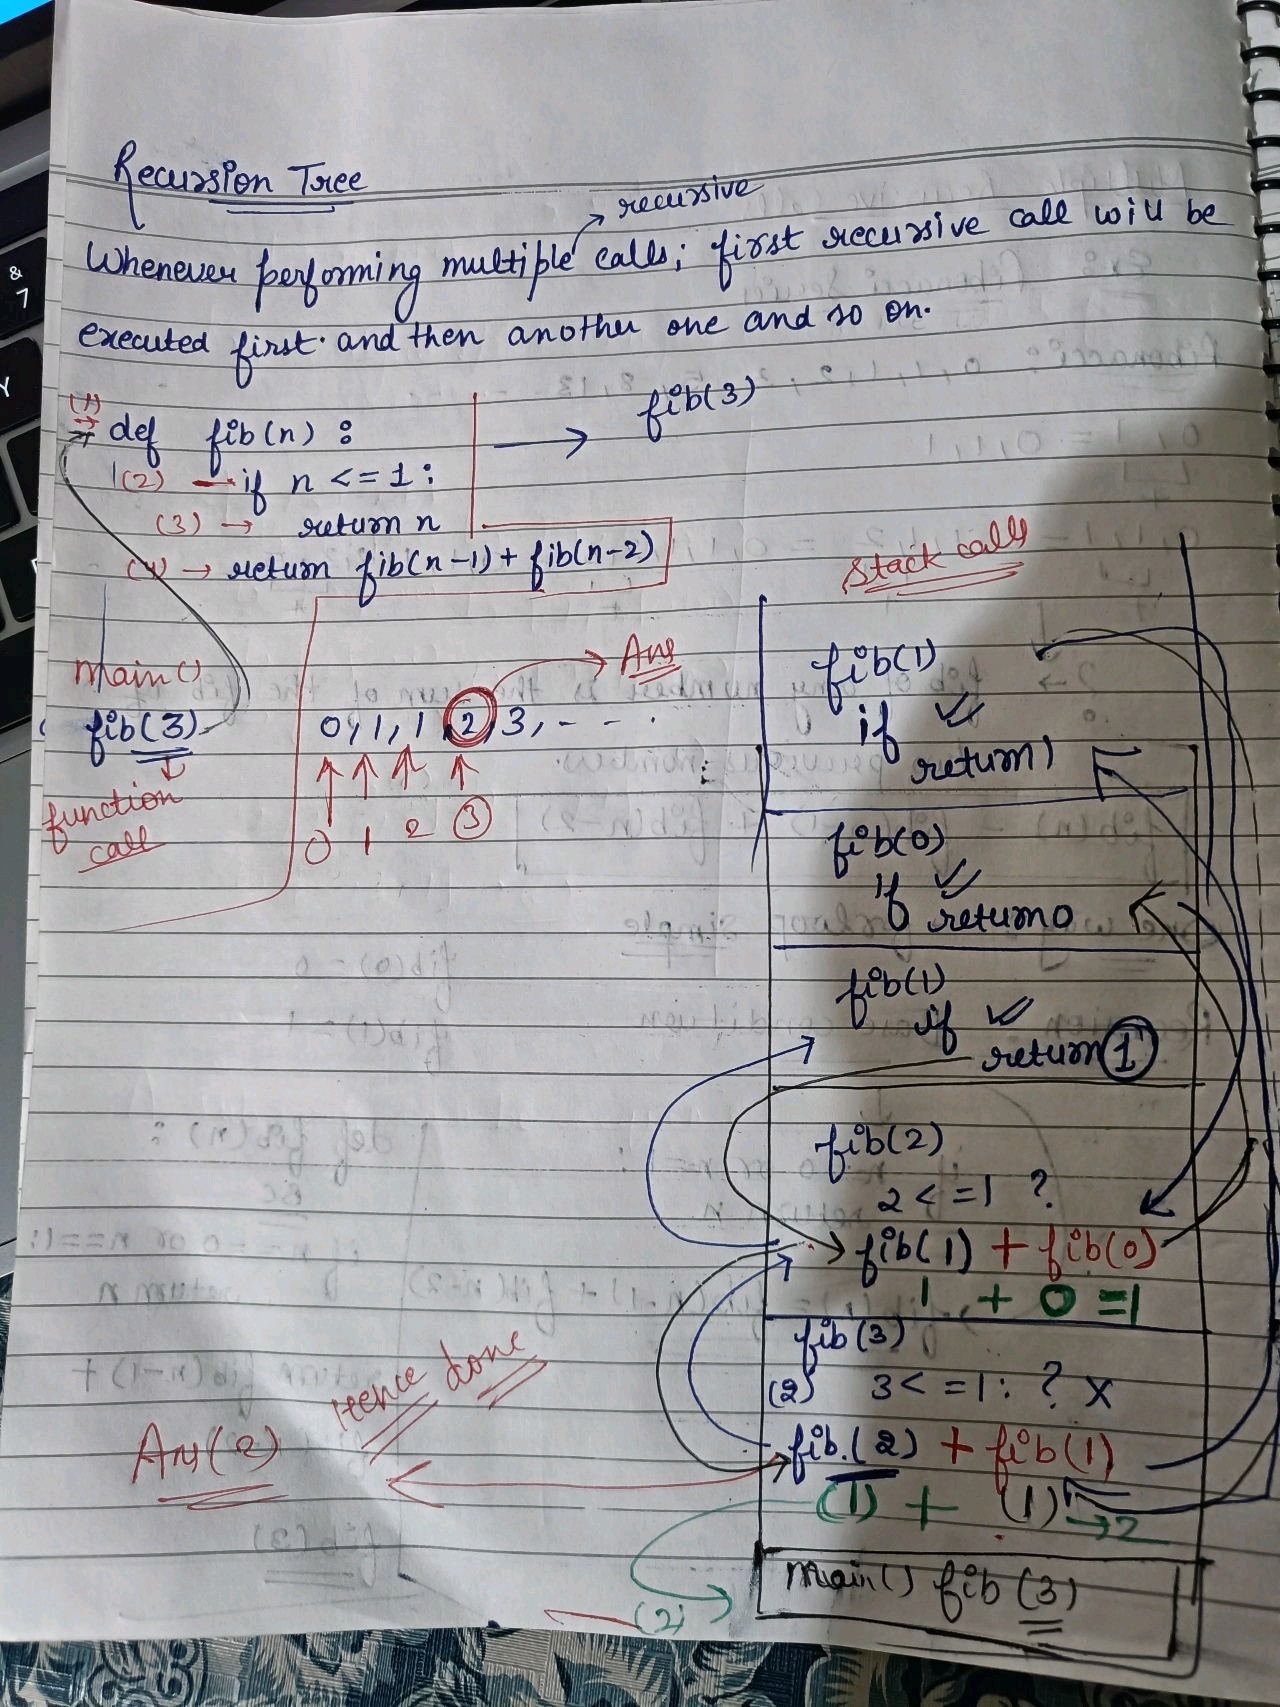 Recursion Tree
recursive
Whenever performing multiple calls; first recursive call will be
executed first. and then another one and so on.
(1) → def fib(n) :
fib(3)
(2) → if n <= 1 :
(3) → return n
(4) → return fib(n-1) + fib(n-2)
main()
fib(3)
function
call
Ans
0, 1, 1, 2, 3, - - .
0 1 2 3
Stack calls
fib(1)
if ✓
return 1
fib(0)
if ✓
return 0
fib(1)
if ✓
return 1
fib(2)
2 <= 1 ?
fib(1) + fib(0)
1 + 0 = 1
fib(3)
(2) 3 <= 1 : ? x
fib(2) + fib(1)
(1) + (1) → 2
main() fib(3)
(2)
Hence done
Ans(2)
&
7
Y